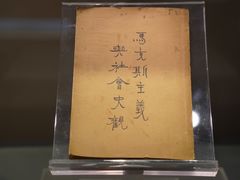 馬克斯主義
與社會史觀